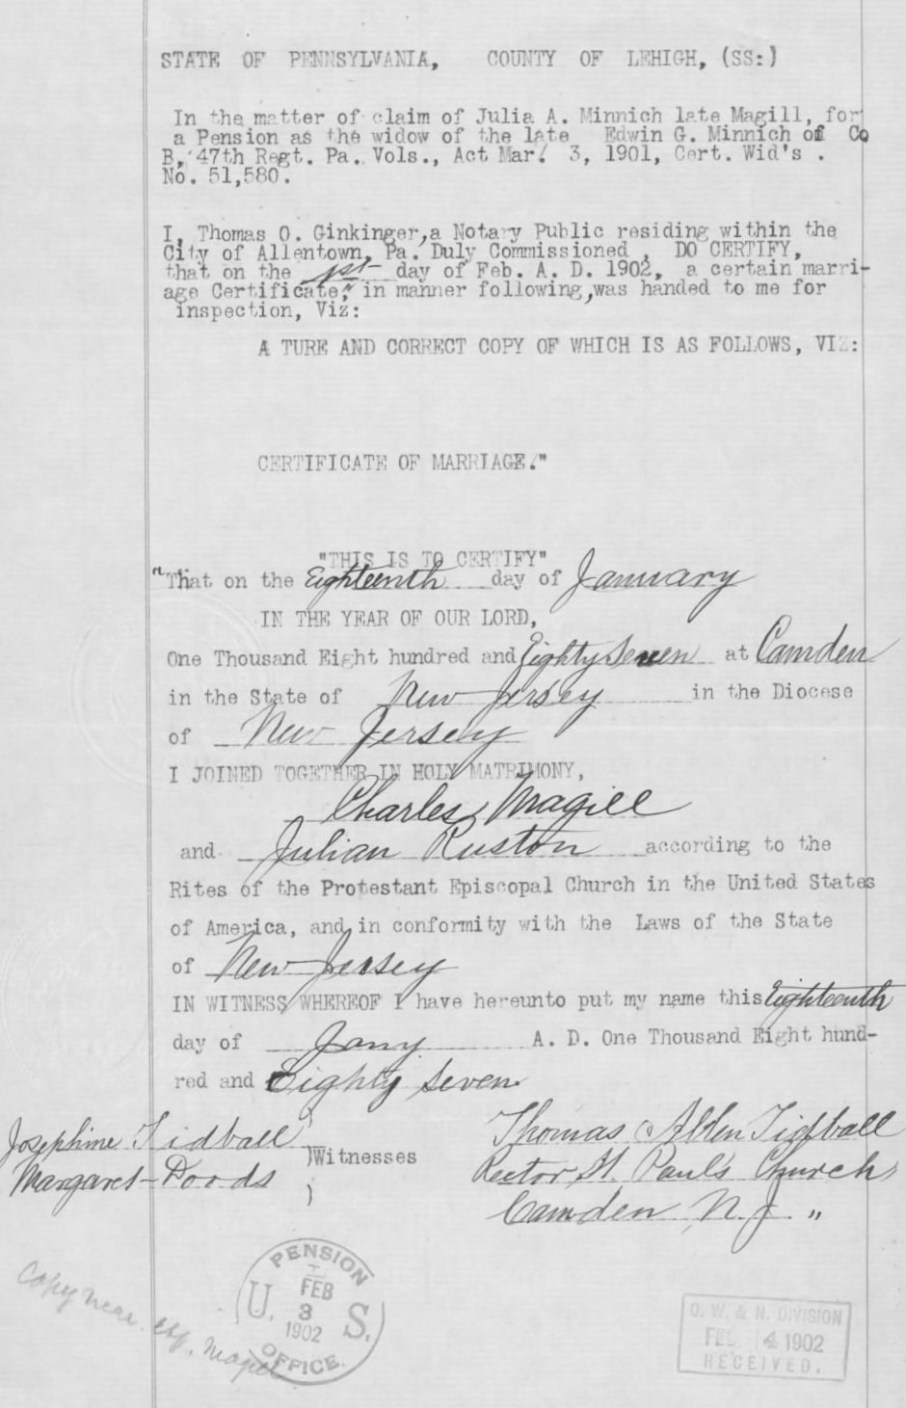 STATE OF PENNSYLVANIA, COUNTY OF LEHIGH, (SS:)
In the matter of claim of Julia A. Minnich late Magill, for
a Pension as the widow of the late Edwin G. Minnich of Co
B, 47th Regt. Pa. Vols., Act Mar. 3, 1901, Cert. Wid's .
No. 51,580.
I, Thomas O. Ginkinger, a Notary Public residing within the
City of Allentown, Pa. Duly Commissioned , DO CERTIFY,
that on the 1st day of Feb. A. D. 1902, a certain marri-
age Certificate, in manner following, was handed to me for
inspection, Viz:
A TURE AND CORRECT COPY OF WHICH IS AS FOLLOWS, VIZ:
CERTIFICATE OF MARRIAGE."
"THIS IS TO CERTIFY"
"That on the Eighteenth day of January
IN THE YEAR OF OUR LORD,
One Thousand Eight hundred and Eighty Seven at Camden
in the State of New Jersey in the Diocese
of New Jersey
I JOINED TOGETHER IN HOLY MATRIMONY,
Charles Magill
and Julian Ruston according to the
Rites of the Protestant Episcopal Church in the United States
of America, and in conformity with the Laws of the State
of New Jersey
IN WITNESS WHEREOF I have hereunto put my name this Eighteenth
day of Jany A. D. One Thousand Eight hund-
red and Eighty Seven
Josephine Tidball ) Thomas Allen Tidball
Margaret Doods )Witnesses Rector St. Paul's Church
) Camden N.J. "
Copy
PENSION
FEB
U. 3 S.
1902
OFFICE.
O. W. & N. DIVISION
FEB 4 1902
RECEIVED.